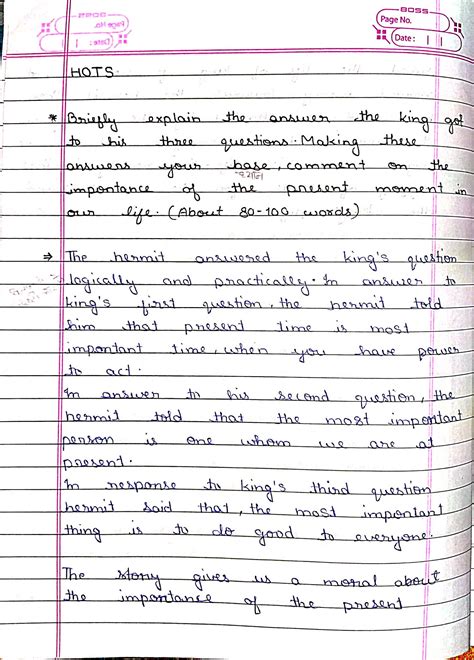 BOSS
Page No.
Date:
HOTS
* Briefly explain the answer the king got
to his three questions. Making these
answers your base, comment on the
importance of the present moment in
our life. (About 80-100 words)
⇒ The hermit answered the king's question
logically and practically. In answer to
king's first question, the hermit told
him that present time is most
important time, when you have power
to act.
In answer to his second question, the
hermit told that the most important
person is one whom we are at
present.
In response to king's third question
hermit said that, the most important
thing is to do good to everyone.
The story gives us a moral about
the importance of the present